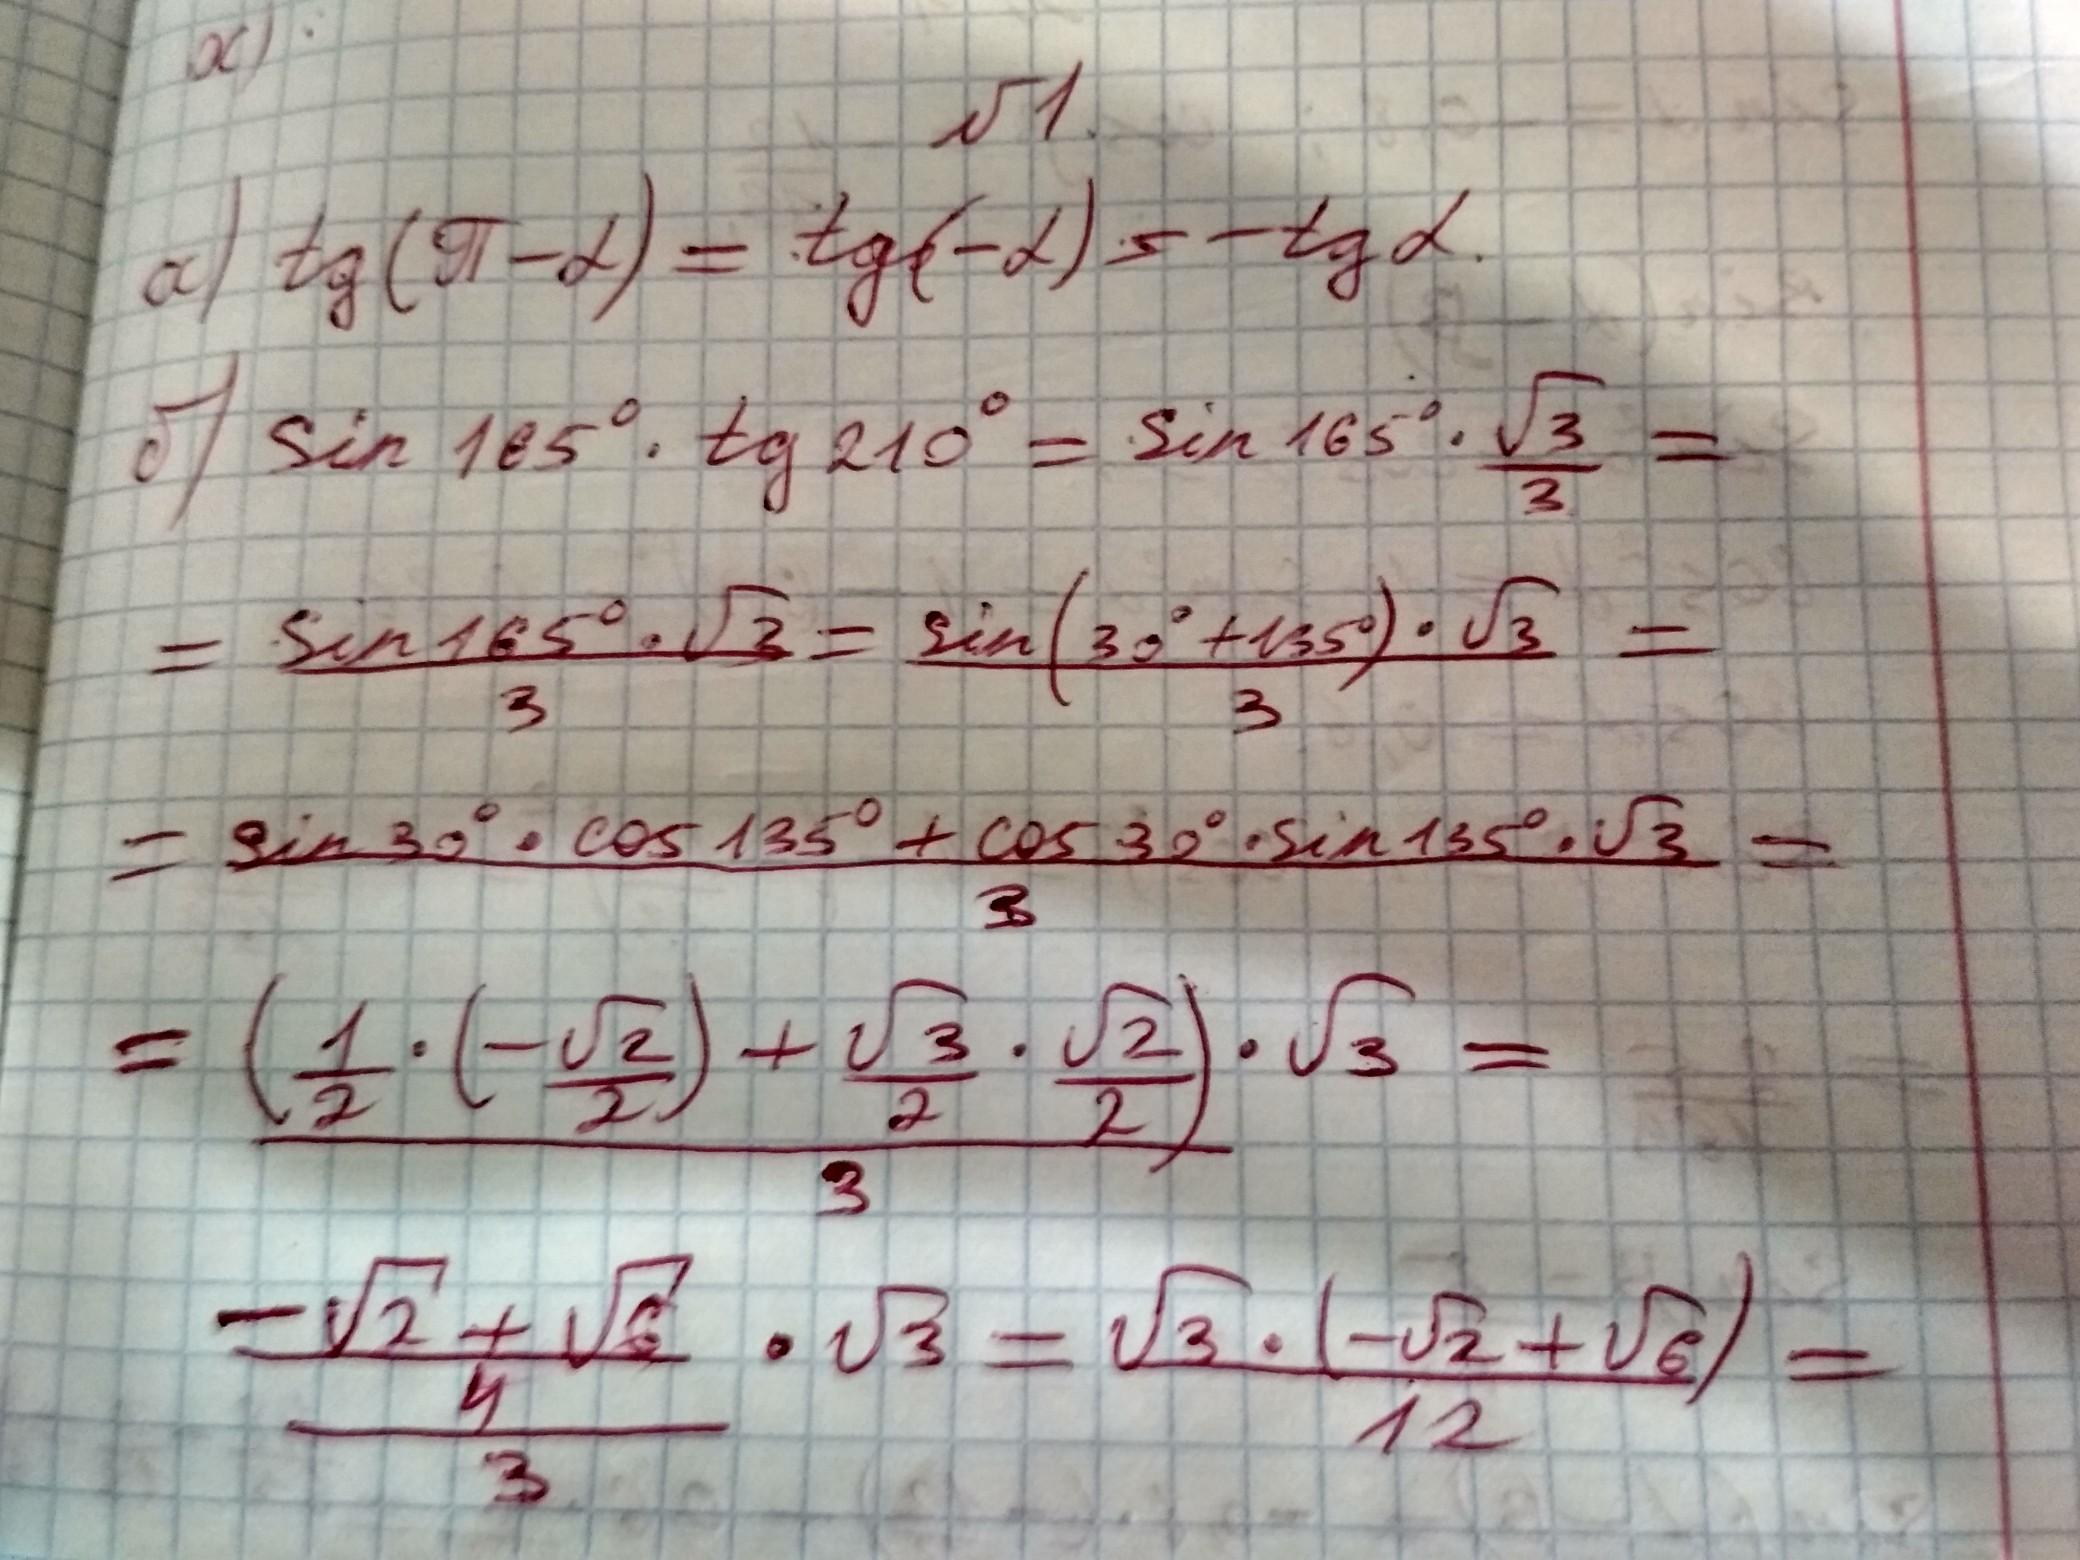 а)
№1.
а) tg(π-α) = tg(-α) = -tgα.
б) sin 165° · tg 210° = sin 165° · √3/3 =
= (sin 165° · √3)/3 = (sin(30°+135°) · √3)/3 =
= (sin 30° · cos 135° + cos 30° · sin 135° · √3)/3 =
= (1/2 · (-√2/2) + √3/2 · √2/2)/3 · √3 =
((-√2 + √6)/4)/3 · √3 = (√3 · (-√2 + √6))/12 =